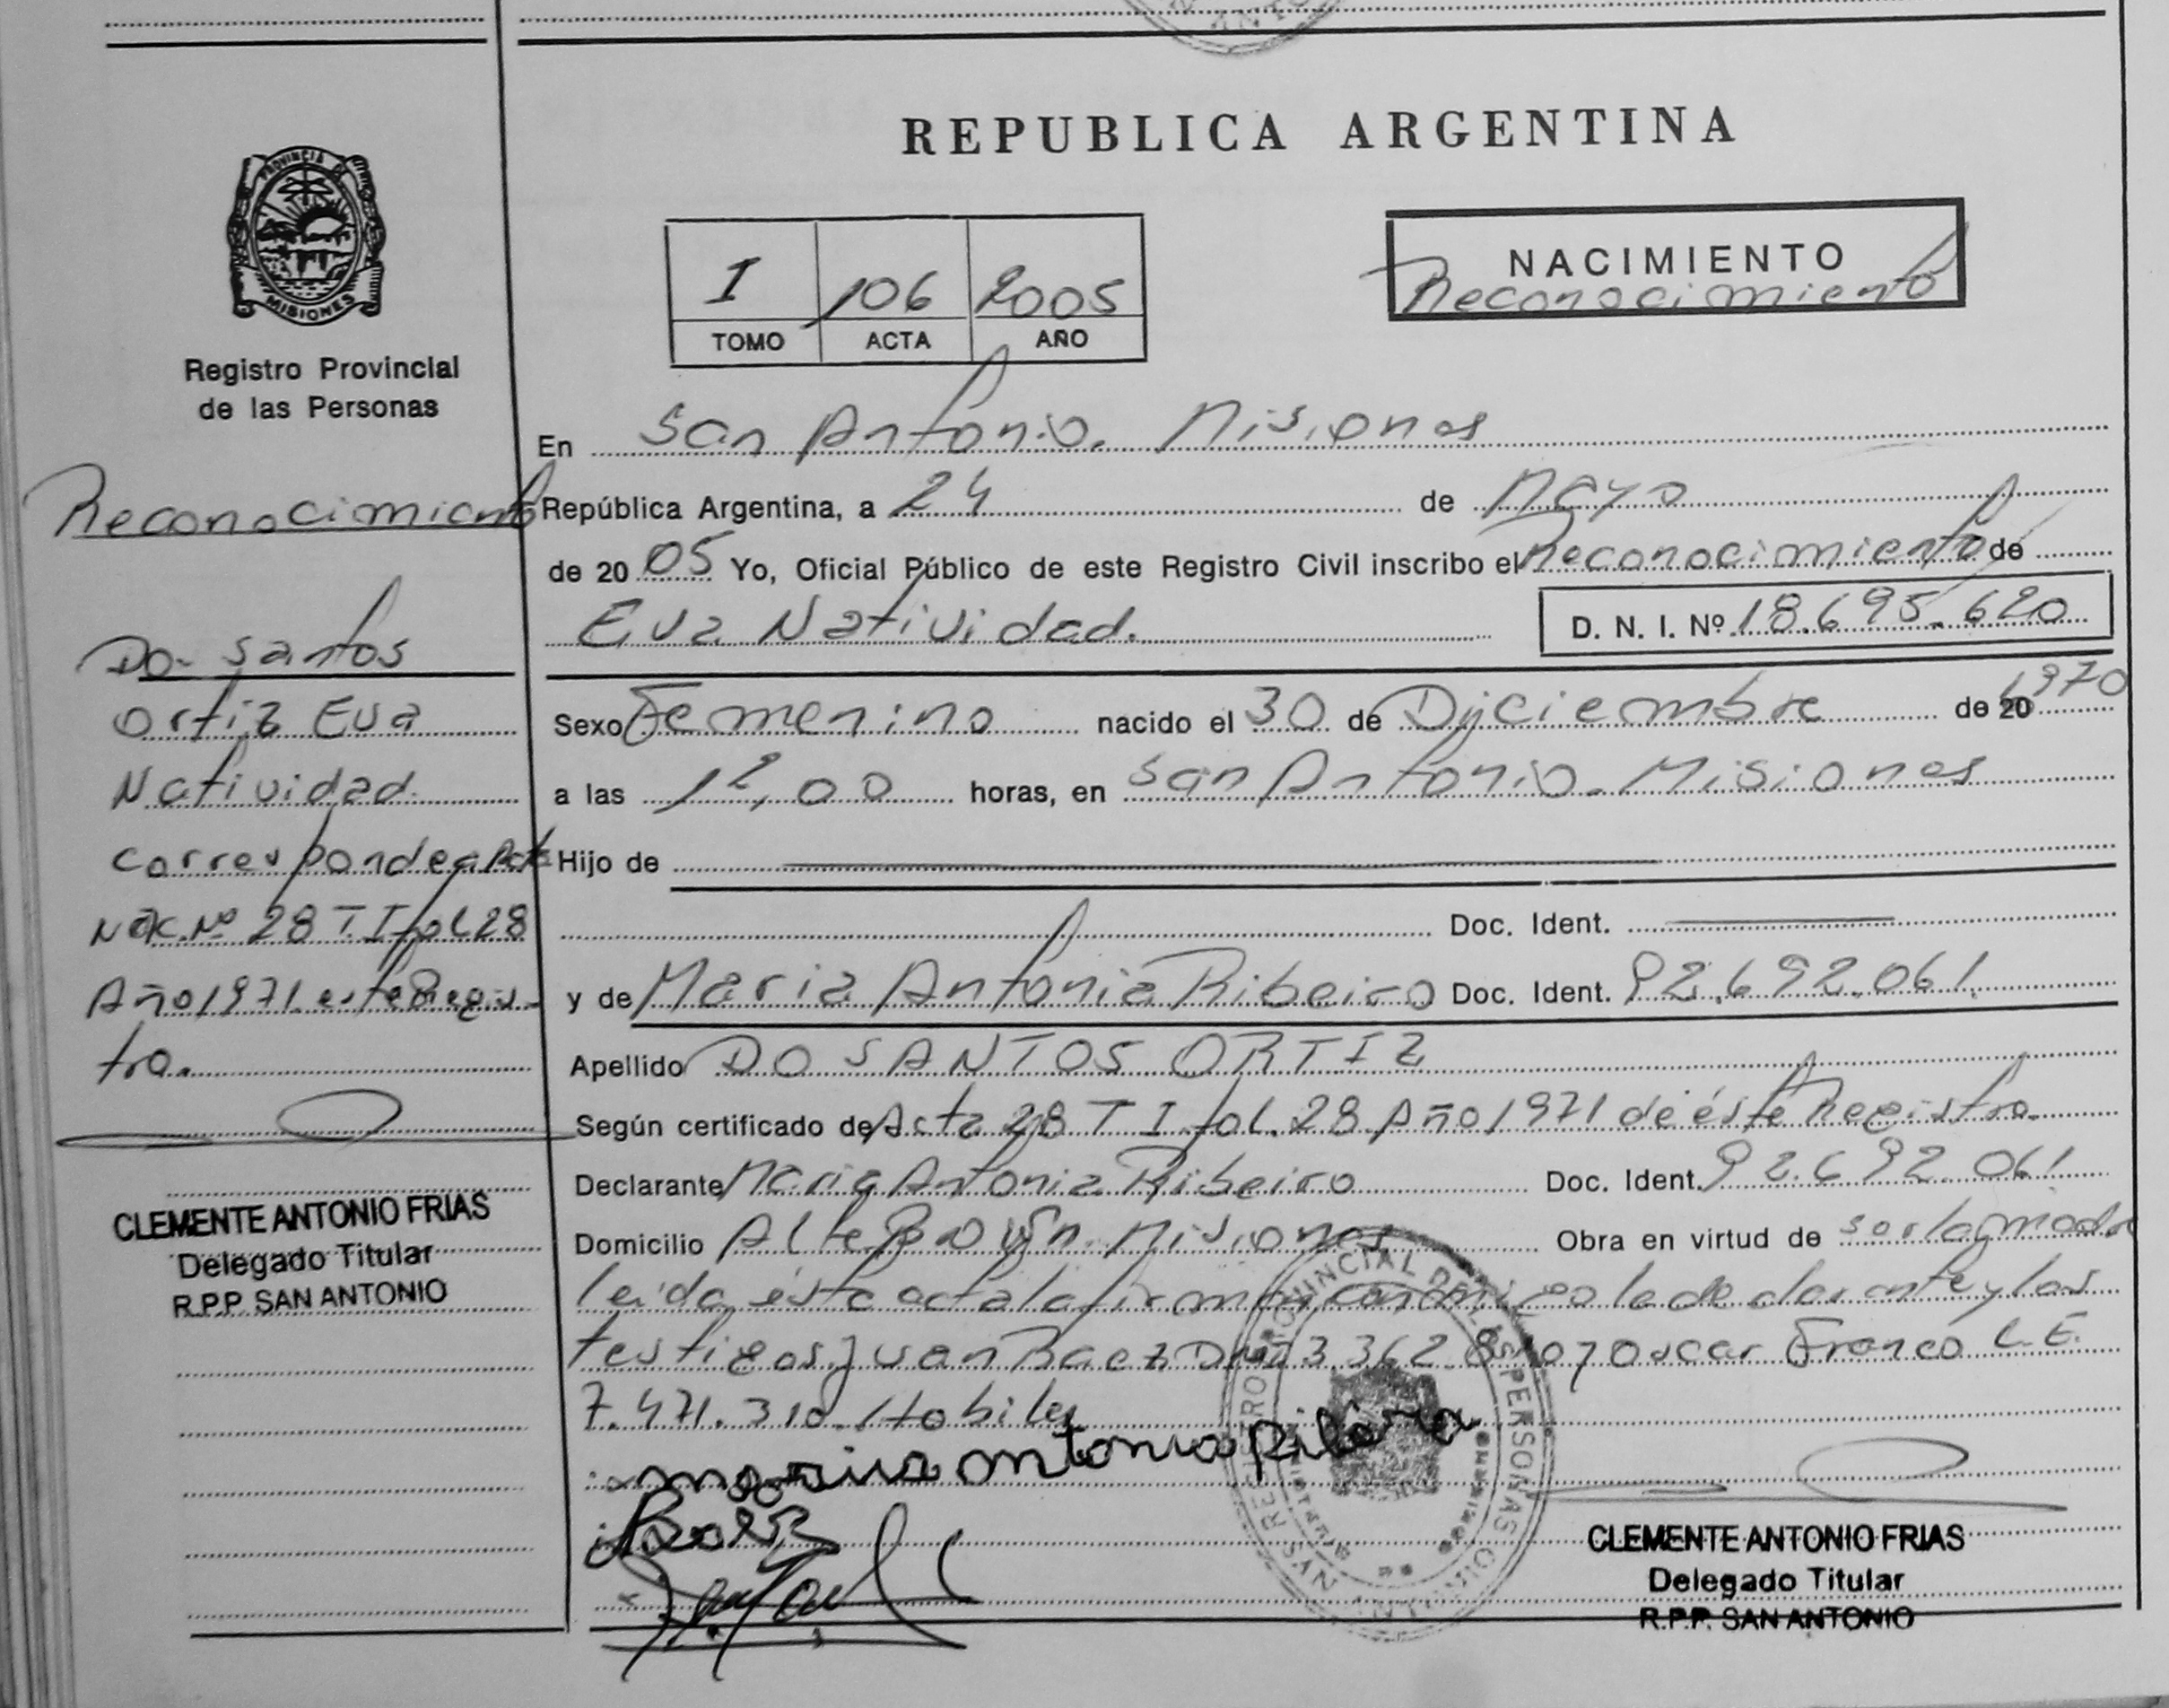 REPUBLICA ARGENTINA
PROVINCIA DE
MISIONES
Registro Provincial
de las Personas
Reconocimiento
Do santos
Ortiz Eva
Natividad
corresponde a Acta
Nac. Nº 28 T I fol 28
Año 1971 este Regis-
tro.
CLEMENTE ANTONIO FRIAS
Delegado Titular
R.P.P. SAN ANTONIO
I 106 2005
TOMO ACTA AÑO
NACIMIENTO
Reconocimiento
En San Antonio. Misiones
República Argentina, a 24 de Mayo
de 20 05 Yo, Oficial Público de este Registro Civil inscribo el Reconocimiento de
Eva Natividad. D. N. I. Nº 18.695.620
Sexo Femenino nacido el 30 de Diciembre de 20 1970
a las 12,00 horas, en San Antonio. Misiones
Hijo de
Doc. Ident.
y de Maria Antonia Ribeiro Doc. Ident. 92.692.061.
Apellido DO SANTOS ORTIZ
Según certificado de Acta 28 T I fol. 28 Año 1971 de éste Registro.
Declarante Maria Antonia Ribeiro Doc. Ident. 92.692.061
Domicilio Alte Brown. Misiones Obra en virtud de ser la madre
leida ésta acta la firman conmigo la declarante y los
testigos Juan Baez y Oscar Franco L.E.
7.471.310. Habiles
maria antonia
Baez
REGISTRO PROVINCIAL DE LAS PERSONAS
CLEMENTE ANTONIO FRIAS
Delegado Titular
R.P.P. SAN ANTONIO